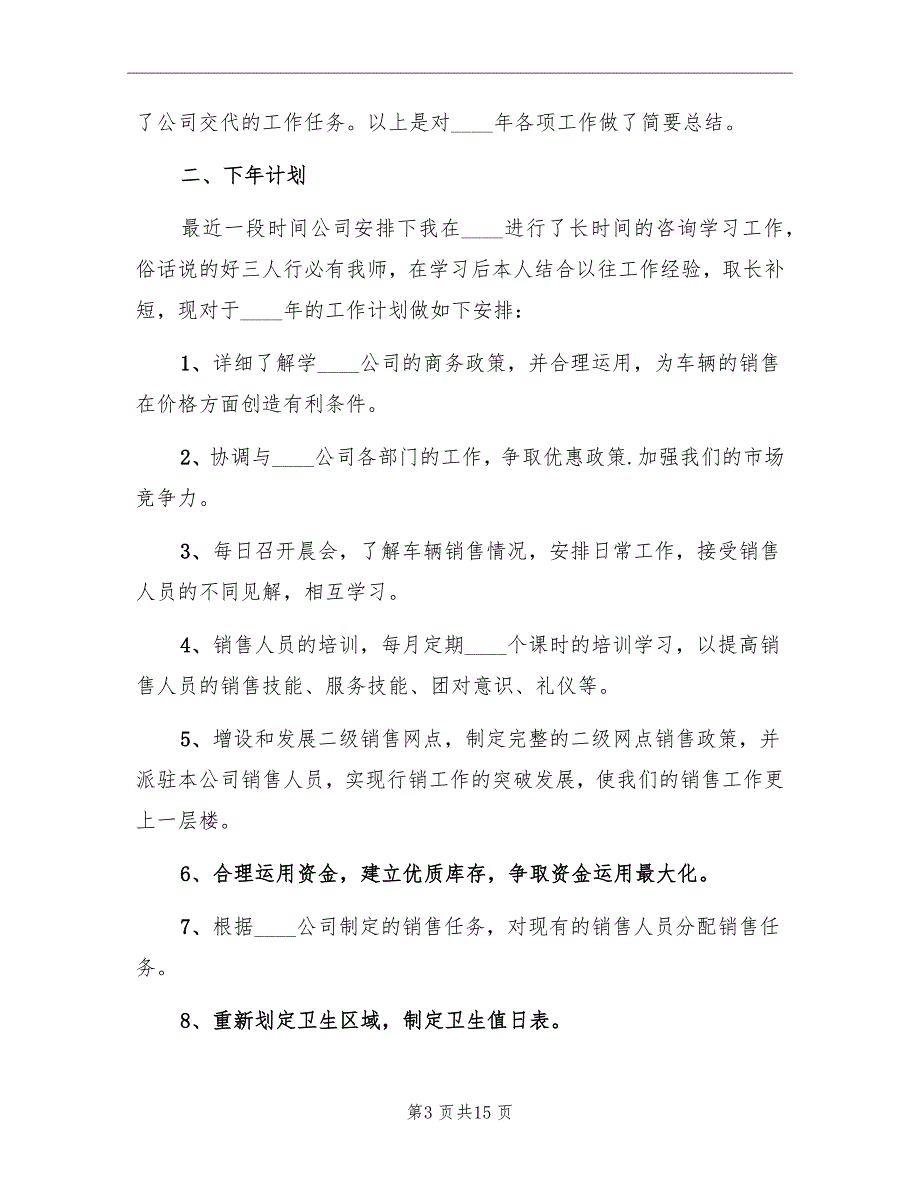 了公司交代的工作任务。以上是对____年各项工作做了简要总结。
二、下年计划
最近一段时间公司安排下我在____进行了长时间的咨询学习工作，
俗话说的好三人行必有我师，在学习后本人结合以往工作经验，取长补
短，现对于____年的工作计划做如下安排：
1、详细了解学____公司的商务政策，并合理运用，为车辆的销售
在价格方面创造有利条件。
2、协调与____公司各部门的工作，争取优惠政策.加强我们的市场
竞争力。
3、每日召开晨会，了解车辆销售情况，安排日常工作，接受销售
人员的不同见解，相互学习。
4、销售人员的培训，每月定期____个课时的培训学习，以提高销
售人员的销售技能、服务技能、团对意识、礼仪等。
5、增设和发展二级销售网点，制定完整的二级网点销售政策，并
派驻本公司销售人员，实现行销工作的突破发展，使我们的销售工作更
上一层楼。
6、合理运用资金，建立优质库存，争取资金运用最大化。
7、根据____公司制定的销售任务，对现有的销售人员分配销售任
务。
8、重新划定卫生区域，制定卫生值日表。
第3 页共15 页